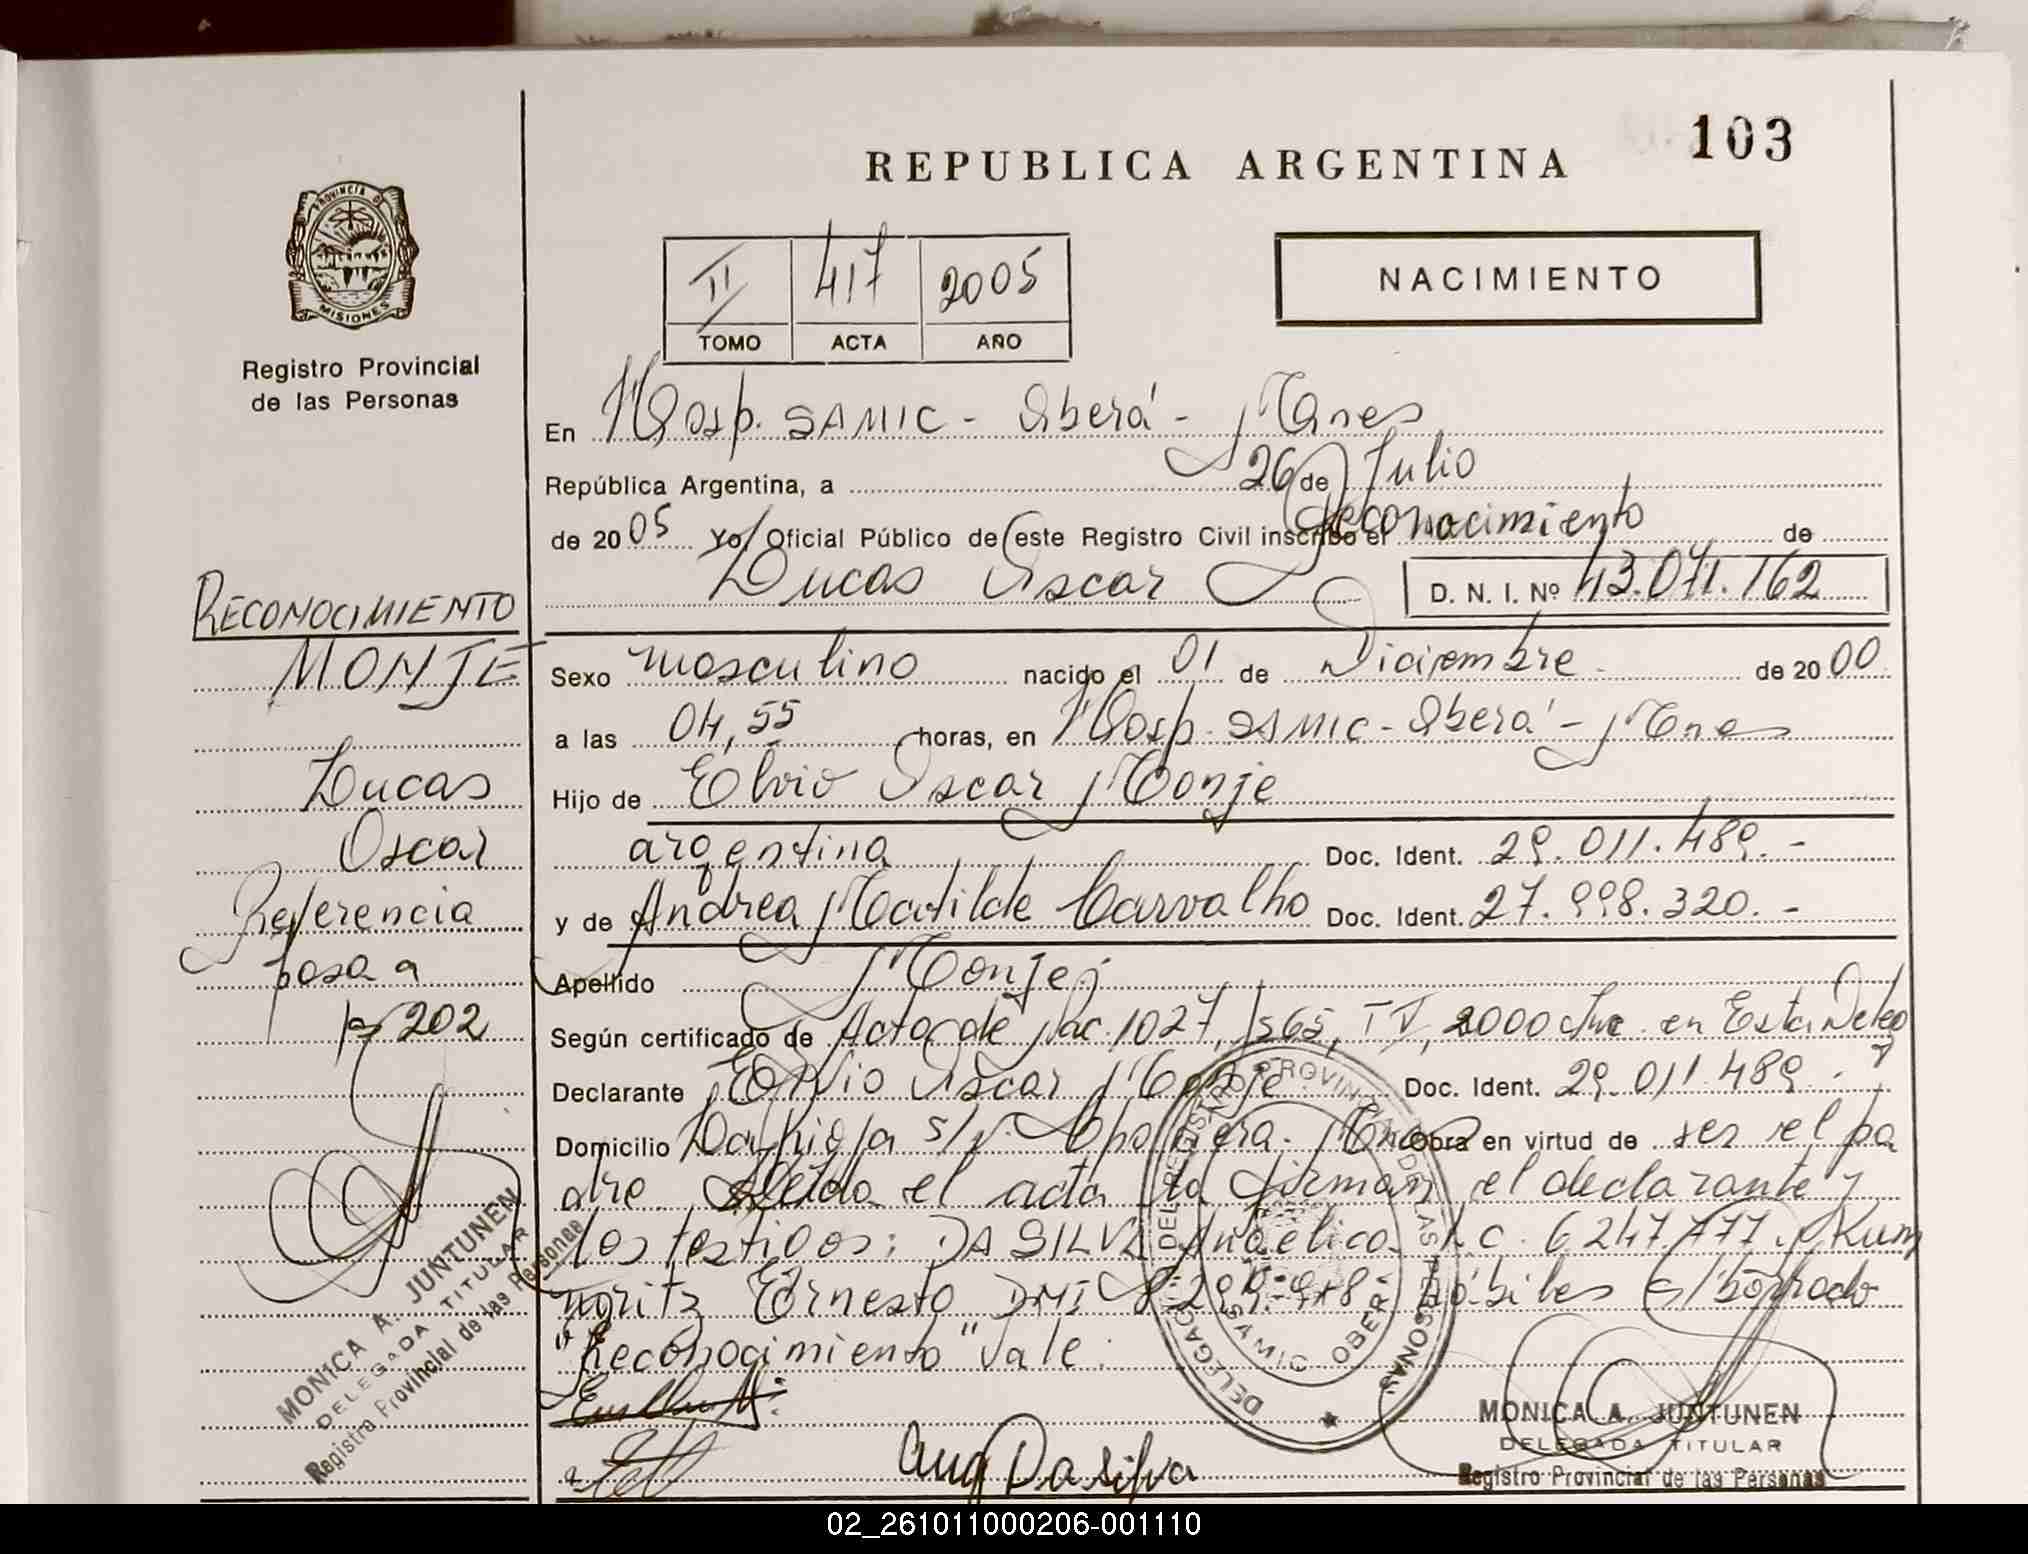 103
REPUBLICA ARGENTINA
PROVINCIA DE
MISIONES
Registro Provincial
de las Personas
II 417 2005
TOMO ACTA AÑO
NACIMIENTO
En Hosp. SAMIC - Oberá - Mnes
República Argentina, a 26 de Julio
de 2005 Yo, Oficial Público de este Registro Civil inscribo el Reconocimiento de
Lucas Oscar D. N. I. Nº 43.071.162
RECONOCIMIENTO
MONJE
Lucas
Oscar
Referencia
pasa a
202
Sexo masculino nacido el 01 de Diciembre de 2000
a las 04,55 horas, en Hosp. SAMIC - Oberá - Mnes
Hijo de Elvio Oscar Monje
argentina Doc. Ident. 29.011.489.-
y de Andrea Matilde Carvalho Doc. Ident. 27.998.320.-
Apellido Monje
Según certificado de Acta de Nac. 1027, Fs 65, T V, 2000 en Esta Deleg
Declarante Elvio Oscar Monje Doc. Ident. 29.011.489.-
Domicilio La Rioja s/n. Obra en virtud de ser el pa
dre Leída el acta la firman el declarante y
los testigos: DA SILVA Angélica L.C. 6247.777. y Kum
moritz Ernesto DNI hábiles E/ borrado
"Reconocimiento" Vale.
Ang Da Silva
MONICA A. JUNTUNEN
DELEGADA TITULAR
Registro Provincial de las Personas
MONICA A. JUNTUNEN
DELEGADA TITULAR
Registro Provincial de las Personas
DELEGACION DEL REGISTRO PROVINCIAL DE LAS PERSONAS
SAMIC OBERA
02_261011000206-001110